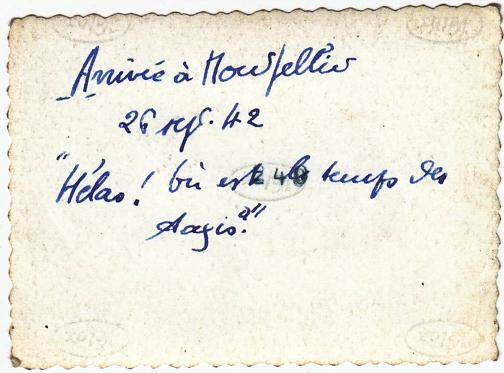 Arrivée à Montpellier
26 sept. 42
"Hélas! où est le temps des
stages?"
248